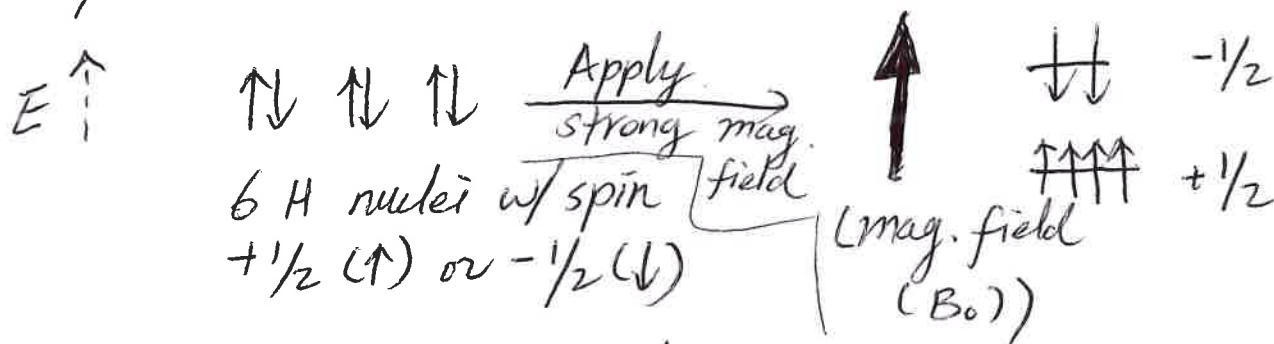 E ↑
↑↓ ↑↓ ↑↓
Apply
strong mag.
field
6 H nuclei w/ spin
+1/2 (↑) or -1/2 (↓)
(mag. field
(B₀))
↓↓ -1/2
↑↑↑↑ +1/2